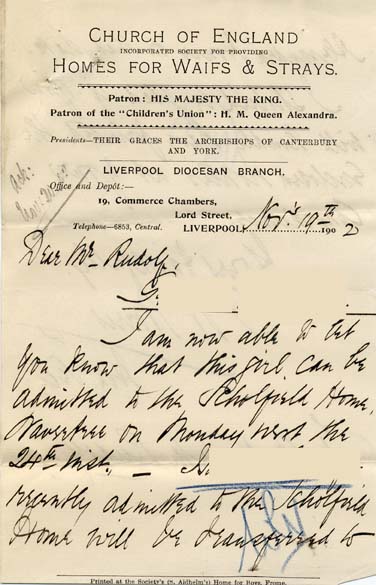 CHURCH OF ENGLAND
INCORPORATED SOCIETY FOR PROVIDING
HOMES FOR WAIFS & STRAYS.
Patron: HIS MAJESTY THE KING.
Patron of the "Children's Union": H. M. Queen Alexandra.
Presidents—THEIR GRACES THE ARCHBISHOPS OF CANTERBURY
AND YORK.
LIVERPOOL DIOCESAN BRANCH,
Office and Depôt:—
19, Commerce Chambers,
Lord Street,
Telephone—6853, Central. LIVERPOOL, Novr 19th 1902
Ack:
Dear Mr Rudolf,
I am now able to let
you know that this girl can be
admitted to the Scholfield Home,
Wavertree on Monday next the
24th inst. —
recently admitted to the Scholfield
Home will be transferred to
Printed at the Society's (S. Aldhelm's) Home for Boys, Frome.